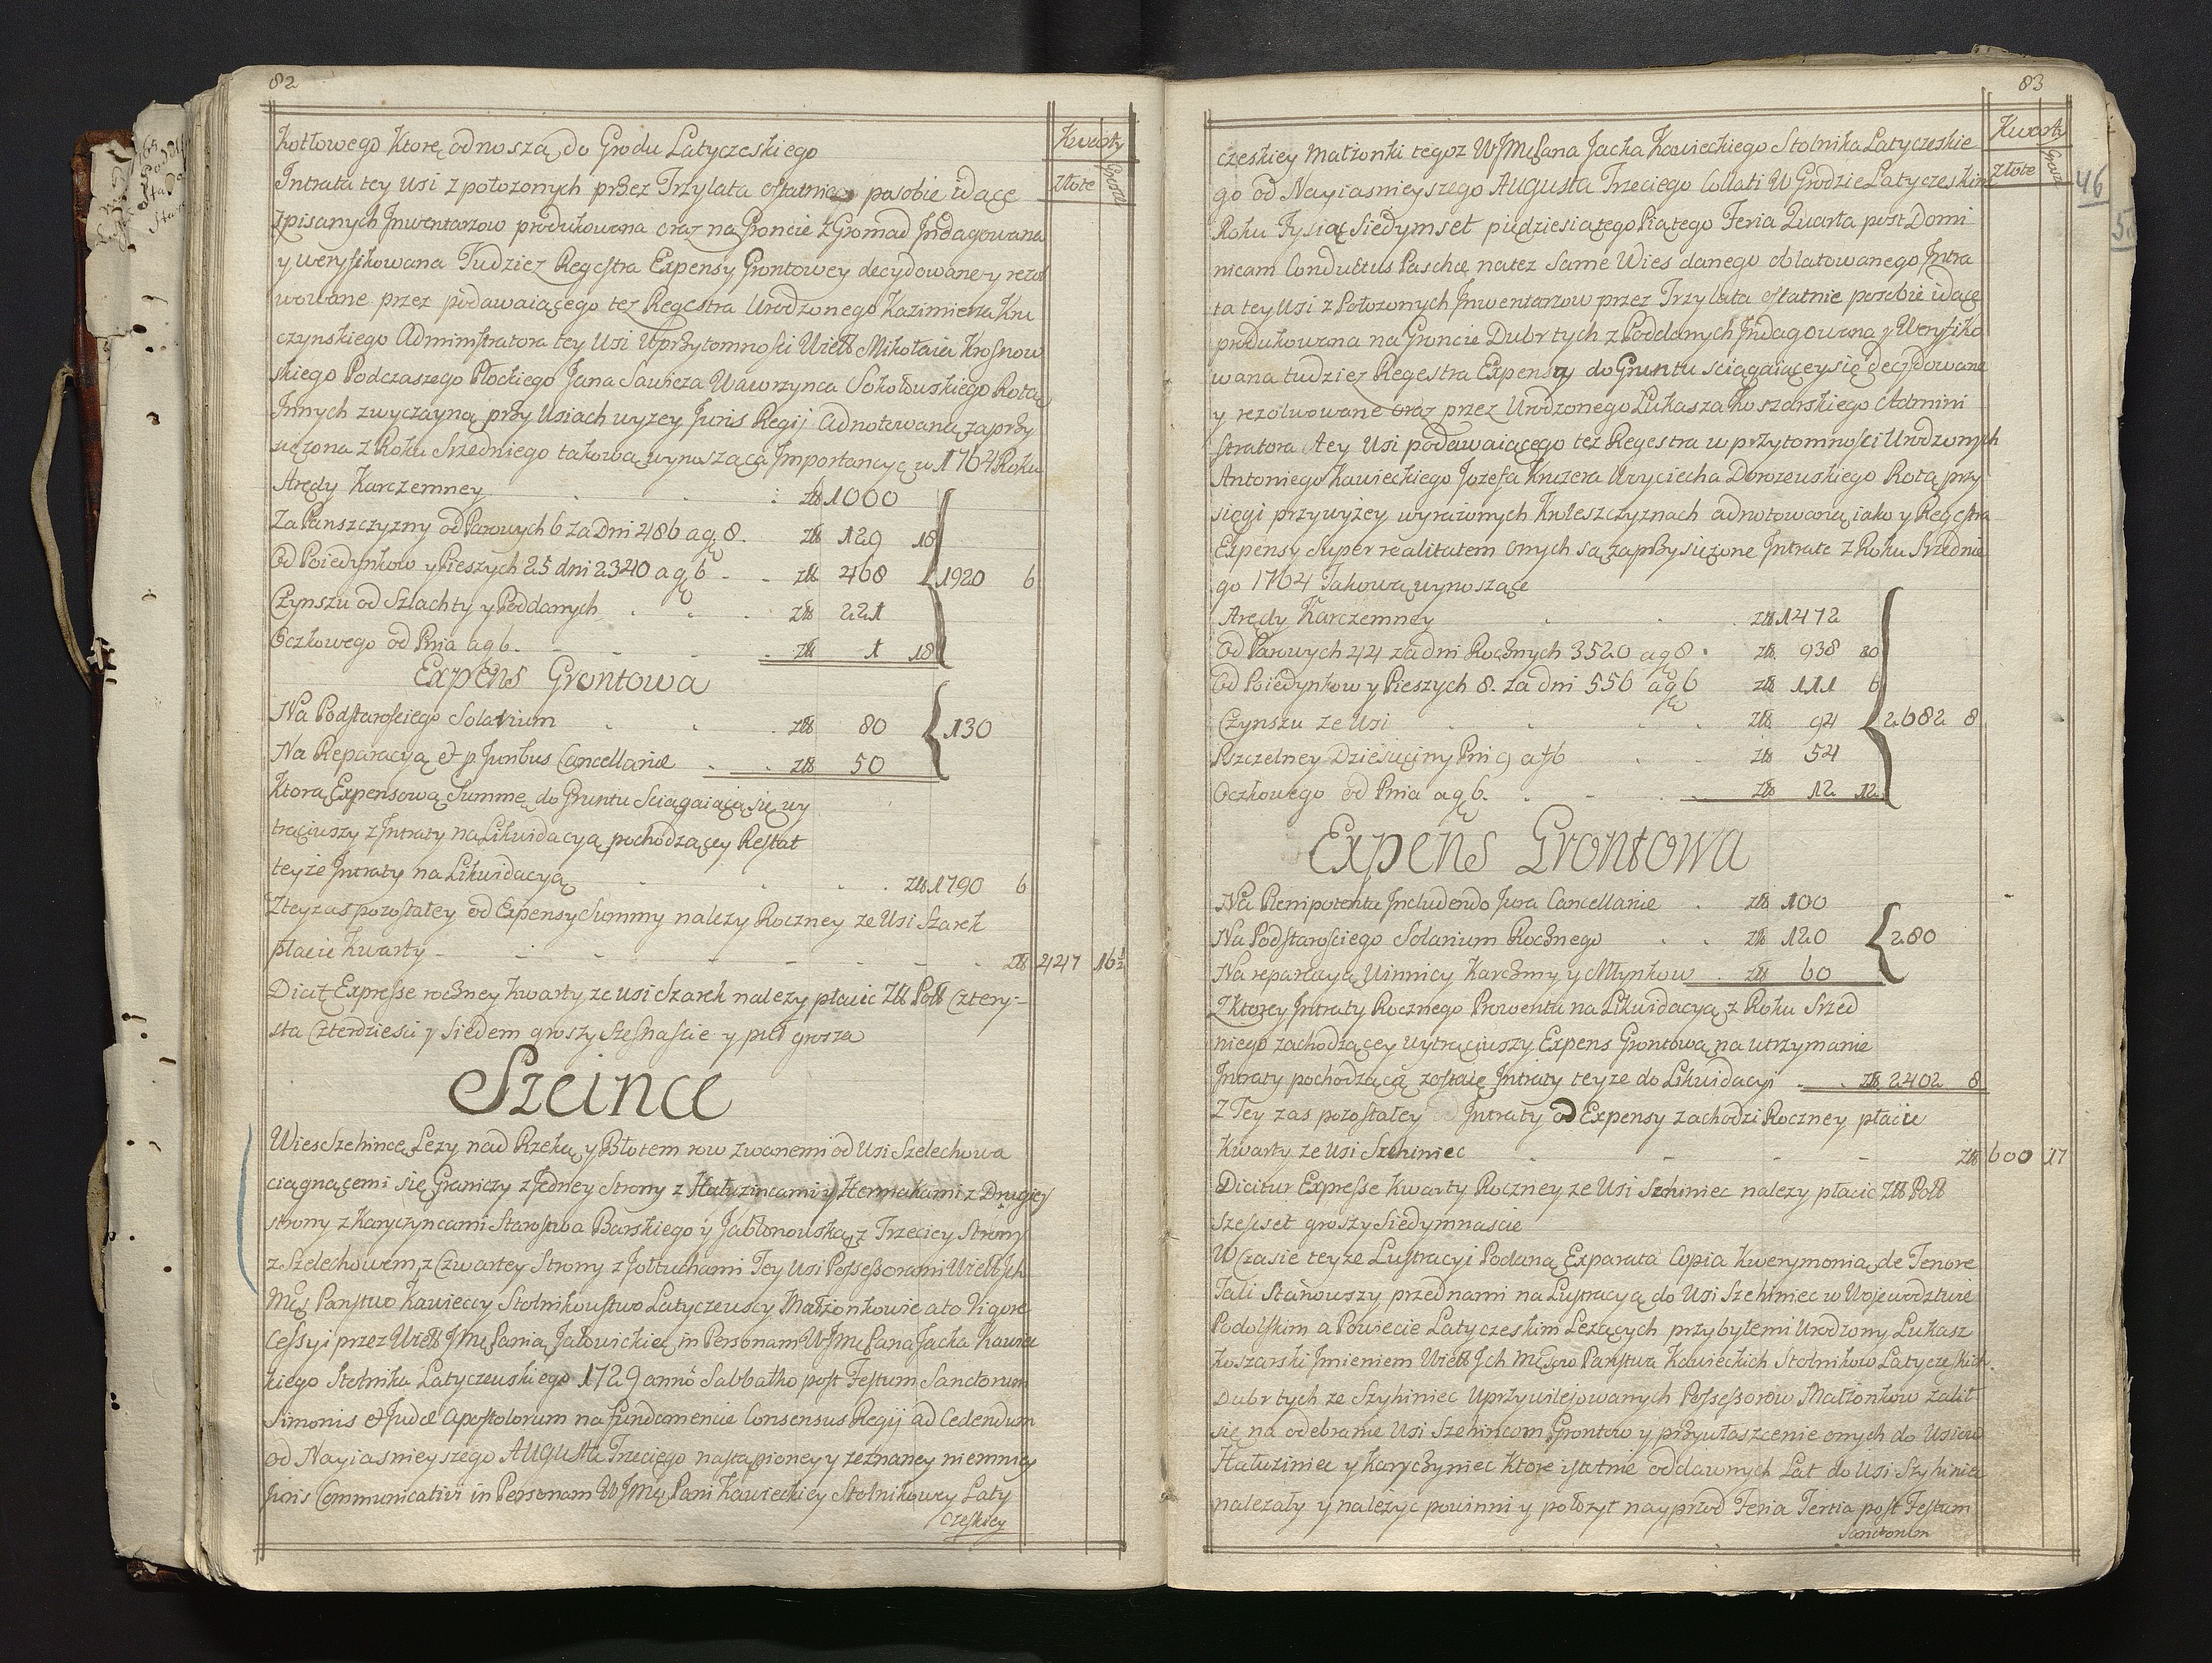 82
Kwarty
Złote
Grosze
Kotłowego Ktore odnoszą do Grodu Latyczeskiego
Intrata tey Wsi z połozonych przez Trzy lata ostatnie posobie idące
spisanych Inwentarzow produkowana oraz na Groncie z Gromad Indagowana
y weryfikowana Tudziez Regestra Expensy Grontowey decydowane y rezol
wowane przez podawaiącego tez Regestra Urodzonego Kazimierza Kru
czynskiego Administratora tey Wsi w przytomnosci Wiell Mikołaia Krosnow
skiego Podczaszego Płockiego Jana Sawicza Wawrzynca Sokołowskiego Rotą
Innych zwyczayną przy Wsiach wyzey Juris Regij adnotowaną zaprzy
siężona z Roku Srzedniego takową wynoszącą Importancyę w 1764 Roku
Arędy Karczemney . . : złł 1000
Za Panszczyzny od Parowych 6 za Dni 486 a gę 8. złł 129 18
Od Poiedynkow y Pieszych 25 dni 2340 a gę 6 - . złł 468 1920 6
Czynszu od Szlachty y Poddanych . . . złł 221
Oczkowego od Pnia a g 6. - - - . złł 1 18
Expens Grontowa
Na Podstarosciego Solarium . . . złł 80 130
Na Reparacyą et p Juribus Cancellariæ . . złł 50
Ktorą Expensową Summę do Gruntu Sciągaiącą się wy
trąciwszy z Intraty na Likwidacyą pochodzącey Restat
teyze Intraty na Likwidacyą . . . . złł 1790 6
Z tey zas pozostałey od Expensy Summy nalezy Roczney ze Wsi Szarek
płacic Kwarty - - - - - - - - złł 447 16½
Dicitę Expresse roczney Kwarty ze Wsi Szarek nalezy płacic Złł Poll Cztery-
sta Czterdziesci y Siedem groszy Szesnascie y puł grosza
Szeince
Wies Szehince Lezy nad Rzeką y Błotem row zwanemi od Wsi Szelechowa
ciągnącemi się Graniczy z Jedney Strony z Hałuzincami y Hermakami z Drugiey
strony z Karyczyncami Starostwa Barskiego y Jabłonowską z Trzeciey Strony
z Szelechowem, z Czwartey Strony z Jołtuchami Tey Wsi Possessorami Wiell Ich
Mę Panstwo Kawieccy Stolnikowstwo Latyczewscy Małzonkowie a to Vigore
Cessyi przez Wiell JMę Panią Jałowickią in Personam W JMę Pana Jacka Kawiec
kiego Stolnika Latyczewskiego 1729 anno Sabbatho post Festum Sanctorum
Simonis et Judæ Apostolorum na fundamencie Consensus Regij ad Cedendum
od Nayiasnieyszego Augusta Trzeciego nastąpioney y zeznaney niemniey
Juris Communicativi in Personam W JMę Pani Kawieckiey Stolnikowey Laty
czeskiey
83
Kwarty
Złote
Grosze
46
5
czeskiey Małzonki tegoz W JMę Pana Jacka Kawieckiego Stolnika Latyczeskie
go od Nayiasnieyszego Augusta Trzeciego Collati w Grodzie Latyczeskim
Roku Tysiąc Siedymset pięcdziesiątego Piątego Feria Quarta post Domi
nicam Conductus Paschæ na tez same Wies danego oblatowanego Intra
ta tey Wsi z Połozonych Inwentarzow przez Trzy lata ostatnie posobie idące
produkowana na Groncie Dubr tych z Poddanych Indagowana y Weryfiko
wana tudziez Regestra Expensy do Gruntu sciągaiącey się decydowane
y rezolwowane oraz przez Urodzonego Lukasza Koszarskiego Admini
stratora tey Wsi podawaiącego tez Regestra w przytomnosci Urodzonych
Antoniego Kawieckiego Jozefa Kruzera Woyciecha Dorozewskiego Rotą przy
sięgi przy wyżey wyrażonych Kuleszczyznach adnotowaną iako y Regestra
Expensy Super realitatem onych są zaprzysiężone Intrate z Roku Srzednie
go 1764 Takową wynoszące
Arędy Karczemney . . . złł 1472
Od Parowych 44 za dni Rocznych 3520 a gę 8 . złł 938 20
Od Poiedynkow y Pieszych 8. za dni 556 a gę 6 złł 111 6
Czynszu ze Wsi . . . . złł 94 2682 8
Pszczelney Dziesięciny Pni 9 a f 6 . . złł 54
Oczkowego od Pnia a gę 6. . - . złł 12 12
Expens Grontowa
Na Plenipotenta Includendo Jura Cancellarie . złł 100
Na Podstarosciego Solarium Rocznego . . złł 120 280
Na reparacyą Winnicy Karczmy y Młynkow . złł 60
Z ktorey Intraty Rocznego Prowentu na Likwidacyą z Roku Srzed
niego zachodzącey wytrąciwszy Expens Grontową na utrzymanie
Intraty pochodzącą zostaie Intraty teyze do Likwidacyi . . złł 2402 8
Z Tey zas pozostałey Intraty od Expensy zachodzi Roczney płacic
Kwarty ze Wsi Szehiniec - - - - złł 600 17
Dicitur Expresse Kwarty Roczney ze Wsi Szehiniec nalezy płacic Złł Poll
szescset groszy Siedymnascie
W Czasie teyze Lustracyi Podaną Exparata Copia Kwerymonią de Tenore
Tali Stanowszy przed nami na Lustracyą do Wsi Szehiniec w Woiewodztwie
Podolskim a Powiecie Latyczeskim Lezących przybyłemi Urodzony Lukasz
Koszarski Imieniem Wiell Ich Mę Panstwa Kawieckich Stolnikow Latyczeskich
Dubr tych ze Szyhiniec Uprzywilejowanych Possessorow Małzonkow zalił
się na odebranie Wsi Szehincom Grontow y przywłaszczenie onych do Wsiow
Hałuziniec y Karyczyniec Ktore istotnie od dawnych Lat do Wsi Szyhiniec
nalezały y należyc powinni y połozył nayprzod Feria Tertia post Festum
Sanctorum